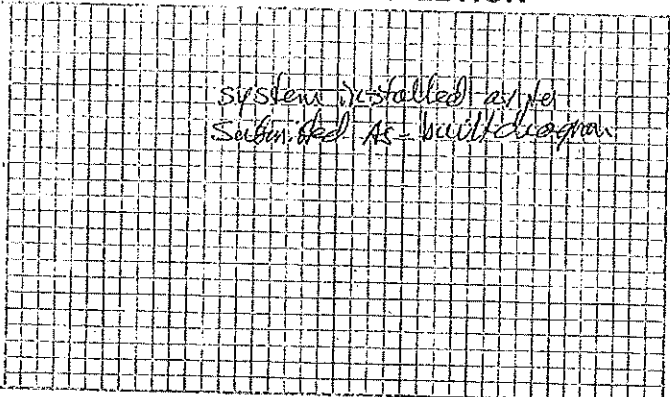 system installed as per
Submitted As-built diagram